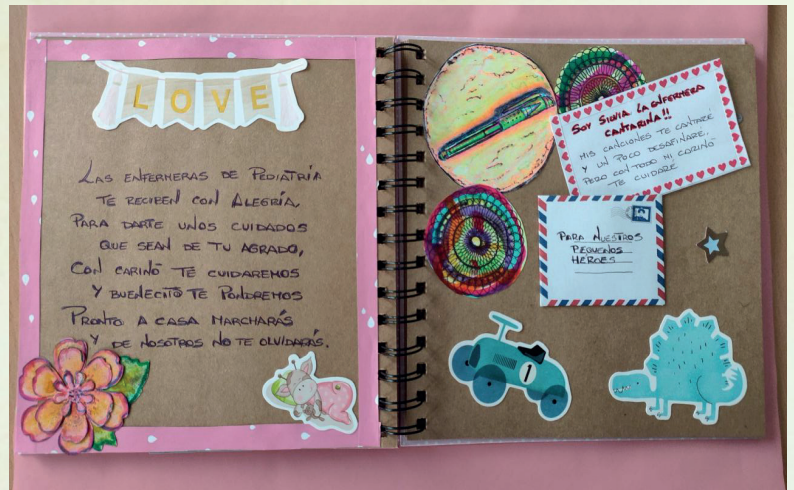 LOVE
LAS ENFERMERAS DE PEDIATRÍA
TE RECIBEN CON ALEGRÍA,
PARA DARTE UNOS CUIDADOS
QUE SEAN DE TU AGRADO,
CON CARIÑO TE CUIDAREMOS
Y BUENECIT@ TE PONDREMOS
PRONTO A CASA MARCHARÁS
Y DE NOSOTROS NO TE OLVIDARÁS.
SOY SILVIA LA ENFERMERA
CANTARINA!!
MIS CANCIONES TE CANTARÉ
Y UN POCO DESAFINARÉ,
PERO CON TODO MI CARIÑO
TE CUIDARÉ
PARA NUESTROS
PEQUEÑOS
HÉROES
1